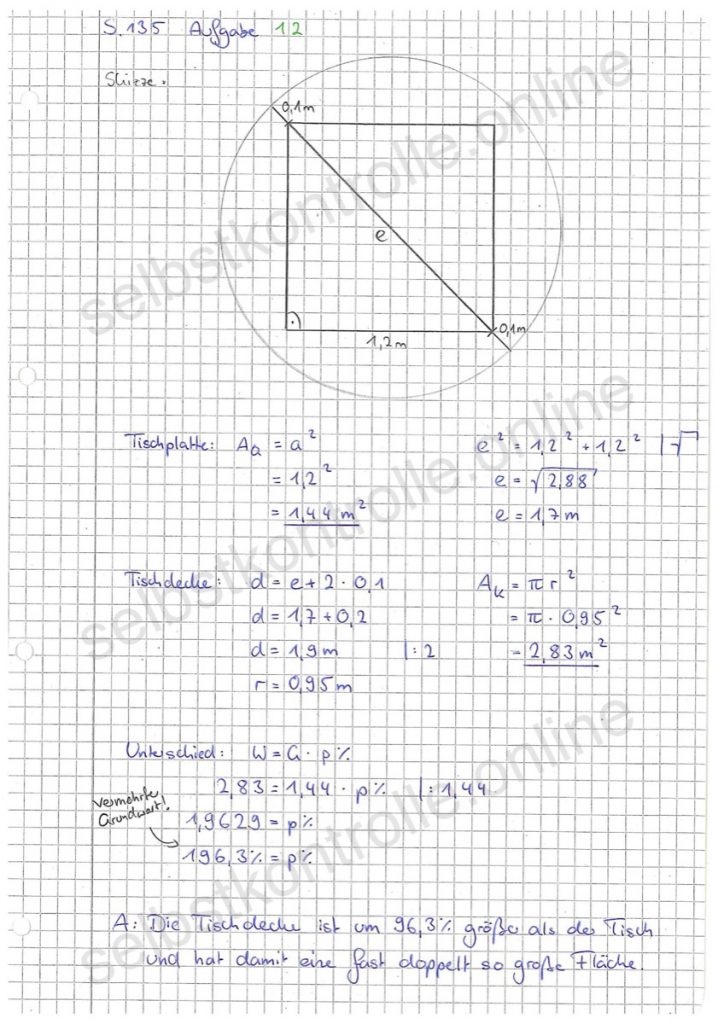 S. 135 Aufgabe 12
Skizze:
0,1m
e
0,1m
1,2m
Tischplatte: A_a = a²
= 1,2²
= 1,44 m²
e² = 1,2² + 1,2² |√
e = √2,88
e = 1,7m
Tischdecke: d = e + 2 · 0,1
d = 1,7 + 0,2
d = 1,9m |: 2
r = 0,95m
A_K = π r²
= π · 0,95²
= 2,83 m²
Unterschied: W = G · p%
2,83 = 1,44 · p% |: 1,44
1,9629 = p%
vermehrter
Grundwert!
196,3% = p%
A: Die Tischdecke ist um 96,3% größer als der Tisch
und hat damit eine fast doppelt so große Fläche.
selbstkontrolle.online
selbstkontrolle.online
selbstkontrolle.online